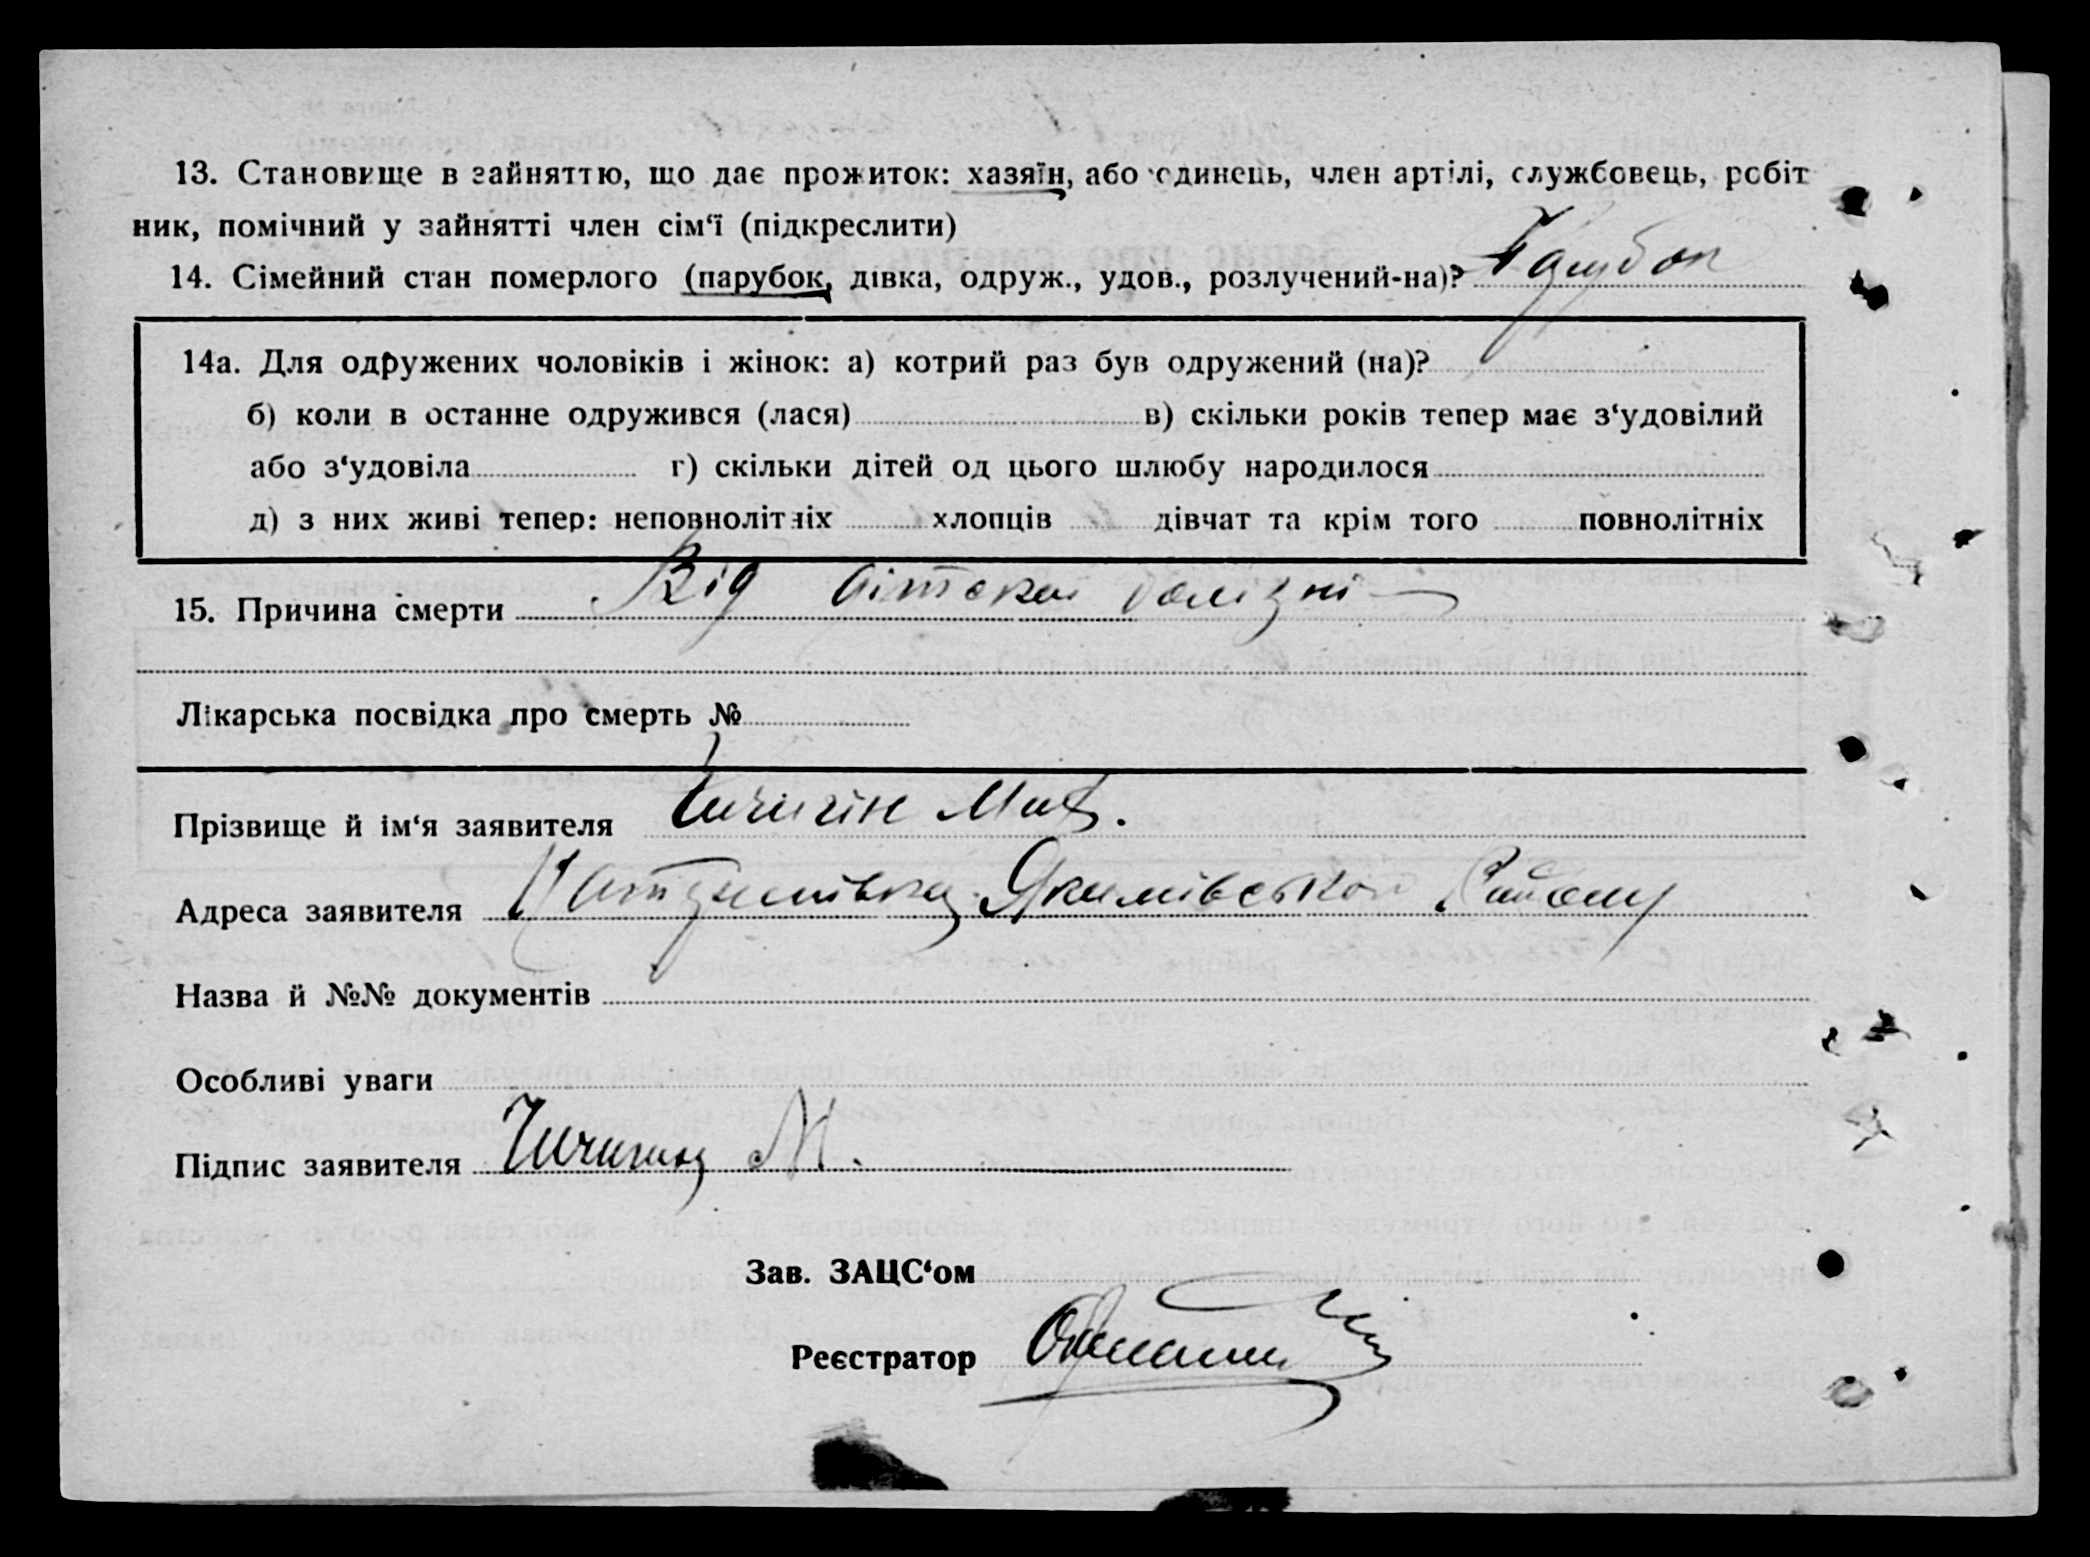 13. Становище в зайняттю, що дає прожиток: хазяїн, або єдинець, член артілі, службовець, робіт
ник, помічний у зайнятті член сім‘ї (підкреслити)
14. Сімейний стан померлого (парубок, дівка, одруж., удов., розлучений-на)? Парубок
14а. Для одружених чоловіків і жінок: а) котрий раз був одружений (на)?
б) коли в останне одружився (лася) в) скільки років тепер має з‘удовілий
або з‘удовіла г) скільки дітей од цього шлюбу народилося
д) з них живі тепер: неповнолітніх хлопців дівчат та крім того повнолітніх
15. Причина смерти Від дітской болізні
Лікарська посвідка про смерть №
Прізвище й ім‘я заявителя Чичигін
Адреса заявителя Якимівськой Району
Назва й №№ документів
Особливі уваги
Підпис заявителя М.
Зав. ЗАЦС‘ом
Реєстратор